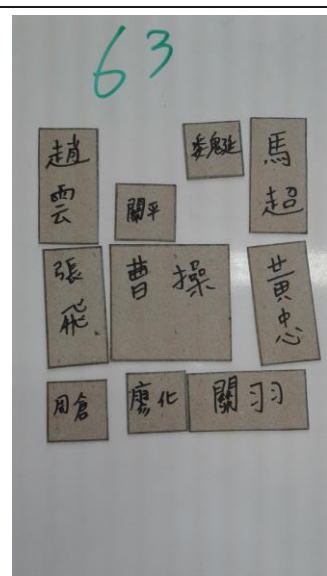 63
趙雲
魏延
馬超
關平
張飛
曹操
黃忠
周倉
廖化
關羽